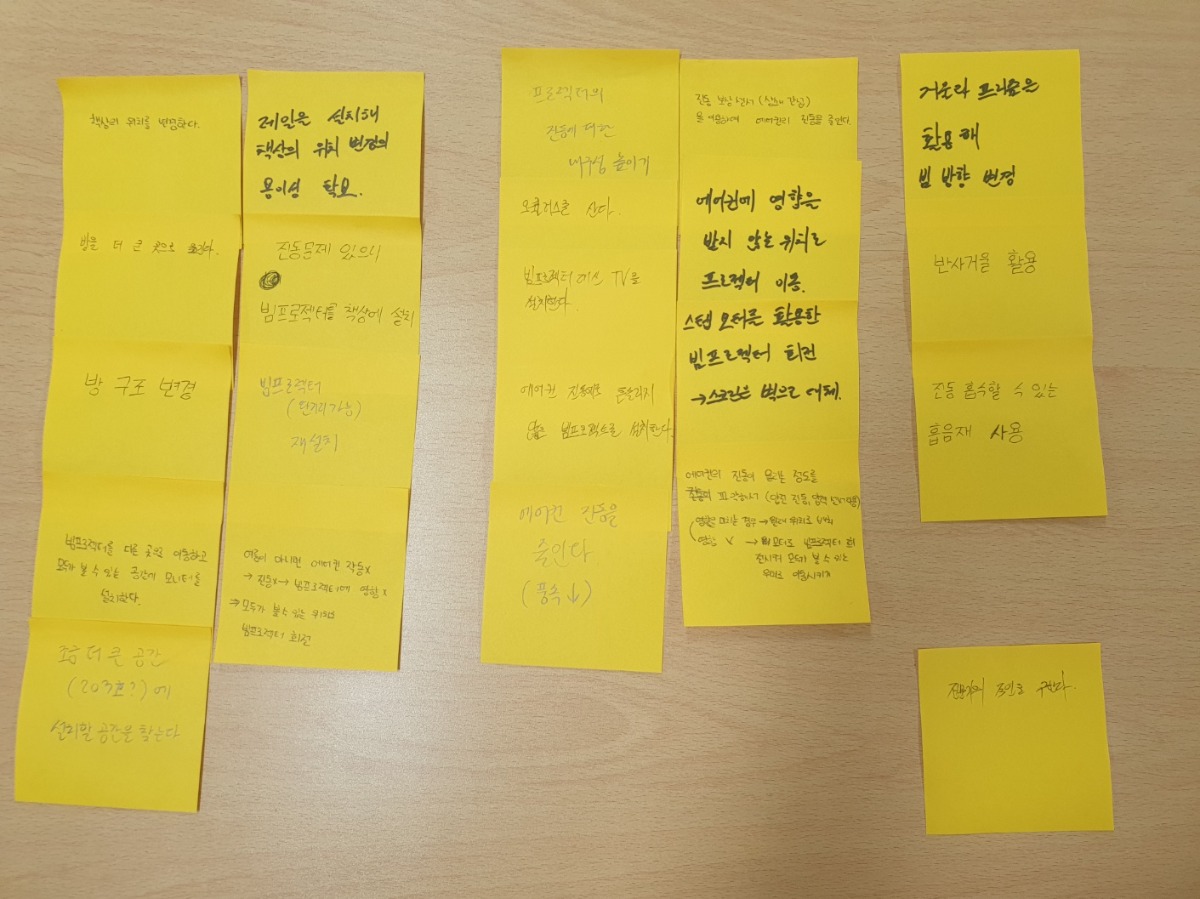 책상의 위치를 변경한다.
방을 더 큰 곳으로 옮긴다.
방 구조 변경
빔프로젝터를 다른 곳으로 이동하고
모두가 볼 수 있는 공간에 모니터를
설치한다.
조금 더 큰 공간
(203호?)에
설치할 공간을 찾는다
레일을 설치해
책상의 위치 변경의
용이성 확보.
진동문제 있으니
빔프로젝터를 책상에 설치
빔프로젝터
(단거리가능)
재설치
여름이 아니면 에어컨 작동x
→ 진동x → 빔프로젝터에 영향 x
⇒ 모두가 볼 수 있는 위치로
빔프로젝터 회전
프로젝터의
진동에 대한
내구성 높이기
오큘러스를 산다.
빔프로젝터 대신 TV를
설치한다.
에어컨 진동에도 흔들리지
않는 빔프로젝터를 설치한다.
에어컨 진동을
줄인다
(풍속↓)
진동 보상 장치
에어컨의 진동을 줄인다.
에어컨에 영향을
받지 않는 위치로
프로젝터 이동.
스텝 모터를 활용한
빔프로젝터 회전
→ 스크린은 벽으로 대체.
에어컨의 진동이 미치는 정도를
파악하기
영향 미치는 경우 → 위치로 배치
영향 x → 모터로 빔프로젝터 회
전시켜 모두가 볼 수 있는
이동시키기
거울과 프리즘은
활용해
빔 방향 변경
반사거울 활용
진동 흡수할 수 있는
흡음재 사용
전문가의 조언을 구한다.